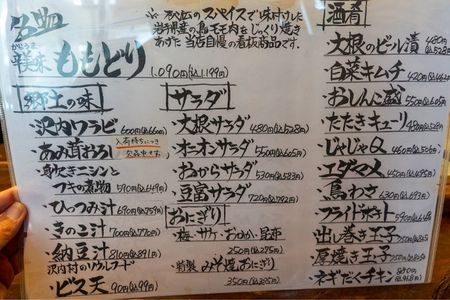 名物
辛味
ももどり
※ 秘伝のスパイスで味付けした
岩手産の鳥モモ肉をじっくり焼き
あげた当店自慢の看板商品です。
1,090円(込1,199円)
郷土の味
・沢内ワラビ 600円(込660円)
・あみ茸おろし 入荷待ちにつき 欠品中です。
・身欠きニシンと
フキの煮物 590円(込649円)
・ひっつみ汁 690円(込759円)
・きのこ汁 700円(込770円)
・納豆汁 810円(込891円)
沢内村のソウルフード
・ビス天 90円(込99円)
サラダ
・大根サラダ 480円(込528円)
・オニオンサラダ 550円(込605円)
・おからサラダ 530円(込583円)
・豆富サラダ 720円(込792円)
おにぎり
・梅・サケ・おかか・昆布
250円(込275円)
・特製 みそ焼おにぎり
350円(込385円)
酒肴
・大根のビール漬 480円(込528円)
・白菜キムチ 420円(込462円)
・おしんこ盛 550円(込605円)
・たたきキュウリ 480円(込528円)
・じゃじゃQ 460円(込506円)
・エダマメ 450円
・鳥わさ 630円(込693円)
・フライドポテト 590円
・出し巻き玉子 750円
・屋焼き玉子 750円
・ネギだくチキン 880円(込968円)